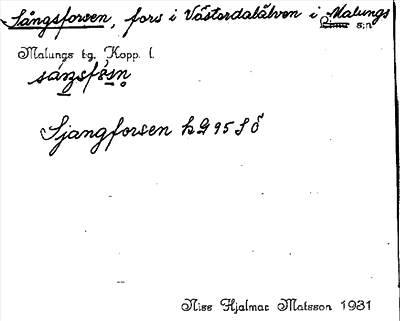 Sångsforsen, fors i Västerdalälven i Malungs
Lima s:n
Malungs tg. Kopp. l.
sáŋsfòṣn̥
Sjangforsen kG 95 S Ö
Niss Hjalmar Matsson 1931